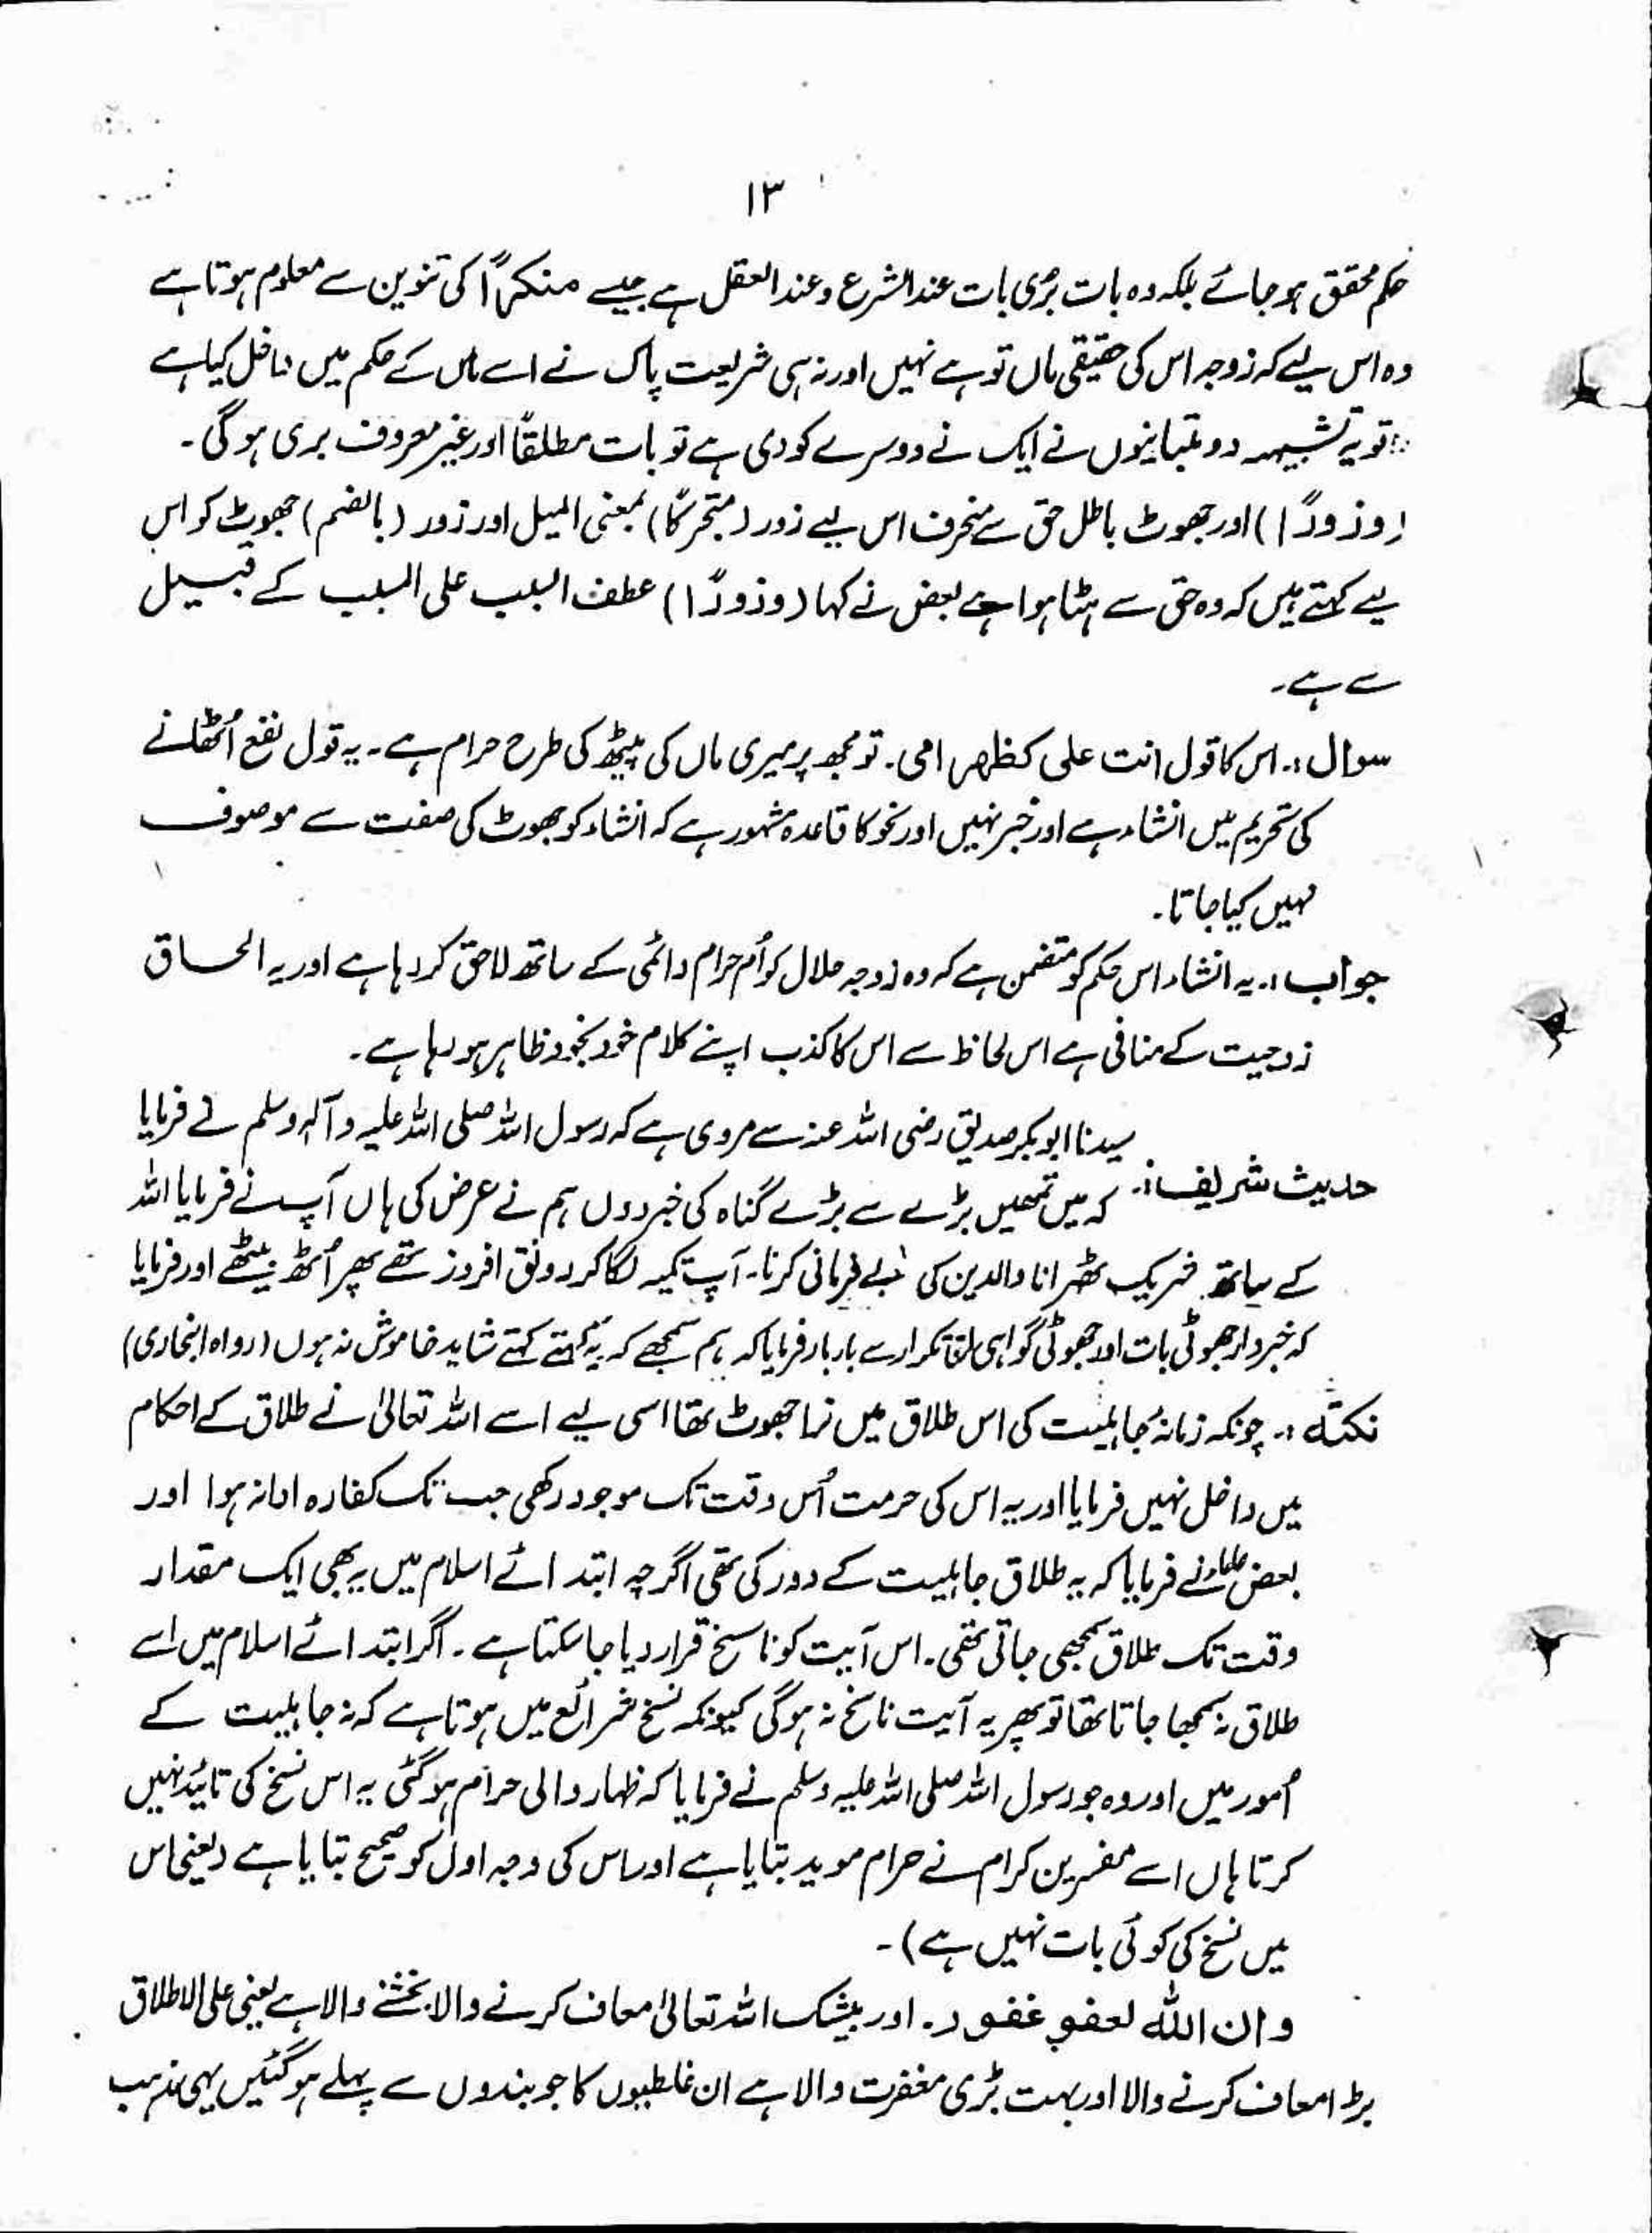 ۱۳
حکم محقق ہو جائے بلکہ وہ بات بری بات عند الشرع و عند العقل ہے جیسے منکراً کی تنوین سے معلوم ہوتا ہے
وہ اس لیے کہ زوجہ اس کی حقیقی ماں تو ہے نہیں اور نہ ہی شریعت پاک نے اسے ماں کے حکم میں داخل کیا ہے
تو یہ تشبیہہ دو متباینوں نے ایک نے دوسرے کو دی ہے تو بات مطلقاً اور غیر معروف بری ہو گی۔
(وزورًا) اور جھوٹ باطل حق سے منحرف اس لیے زور (متحرکًا) بمعنی المیل اور زور (بالضم) جھوٹ کو اس
لیے کہتے ہیں کہ وہ حق سے ہٹا ہوا ہے بعض نے کہا (وزورًا) عطف السبب علی المسبب کے قبیل
سے ہے۔
سوال:۔ اس کا قول انت علی کظھر امی۔ تو مجھ پر میری ماں کی پیٹھ کی طرح حرام ہے۔ یہ قول نفع اُٹھانے
کی تحریم میں انشاء ہے اور خبر نہیں اور نحو کا قاعدہ مشہور ہے کہ انشاء کو جھوٹ کی صفت سے موصوف
نہیں کیا جاتا۔
جواب:۔ یہ انشاء اس حکم کو متضمن ہے کہ وہ زوجہ حلال کو اُم حرام دائمی کے ساتھ لاحق کر رہا ہے اور یہ الحاق
زوجیت کے منافی ہے اس لحاظ سے اس کا کذب اپنے کلام خود بخود ظاہر ہو رہا ہے۔
سیدنا ابوبکر صدیق رضی اللہ عنہ سے مروی ہے کہ رسول اللہ صلی اللہ علیہ وآلہ وسلم نے فرمایا
حدیث شریف:۔ کہ میں تمھیں بڑے سے بڑے گناہ کی خبر دوں ہم نے عرض کی ہاں آپ نے فرمایا اللہ
کے ساتھ شریک ٹھہرانا والدین کی بے فرمانی کرنا۔ آپ تکیہ لگا کر رونق افروز تھے پھر اُٹھ بیٹھے اور فرمایا
کہ خبردار جھوٹی بات اور جھوٹی گواہی تکرار سے بار بار فرمایا کہ ہم سمجھے کہ یہ کہتے کہتے شاید خاموش نہ ہوں (رواہ البخاری)
نکتہ:۔ چونکہ زمانۂ جاہلیت کی اس طلاق میں نرا جھوٹ تھا اسی لیے اسے اللہ تعالیٰ نے طلاق کے احکام
میں داخل نہیں فرمایا اور یہ اس کی حرمت اُس وقت تک موجود رکھی جب تک کفارہ ادا نہ ہوا اور
بعض علماء نے فرمایا کہ یہ طلاق جاہلیت کے دور کی تھی اگرچہ ابتدائے اسلام میں یہ بھی ایک مقدار
وقت تک طلاق سمجھی جاتی تھی۔ اس آیت کو ناسخ قرار دیا جا سکتا ہے۔ اگر ابتدائے اسلام میں اسے
طلاق نہ سمجھا جاتا تھا تو پھر یہ آیت ناسخ نہ ہو گی کیونکہ نسخ شرائع میں ہوتا ہے کہ نہ جاہلیت کے
اُمور میں اور وہ جو رسول اللہ صلی اللہ علیہ وسلم نے فرمایا کہ ظہار والی حرام ہو گئی یہ اس نسخ کی تائید نہیں
کرتا ہاں اسے مفسرین کرام نے حرام موبد بتایا ہے اور اس کی وجہ اول کو صحیح بتایا ہے (یعنی اس
میں نسخ کی کوئی بات نہیں ہے)۔
وان اللّٰہ لعفو غفور۔ اور بیشک اللہ تعالیٰ معاف کرنے والا بخشنے والا ہے یعنی علی الاطلاق
بڑا معاف کرنے والا اور بہت بڑی مغفرت والا ہے ان غلطیوں کا جو بندوں سے پہلے ہو گئیں یہی مذہب